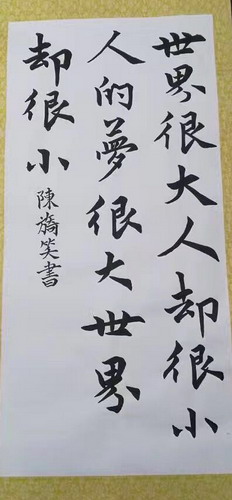 世界很大人却很小
人的夢很大世界
却很小
陳旖笑書